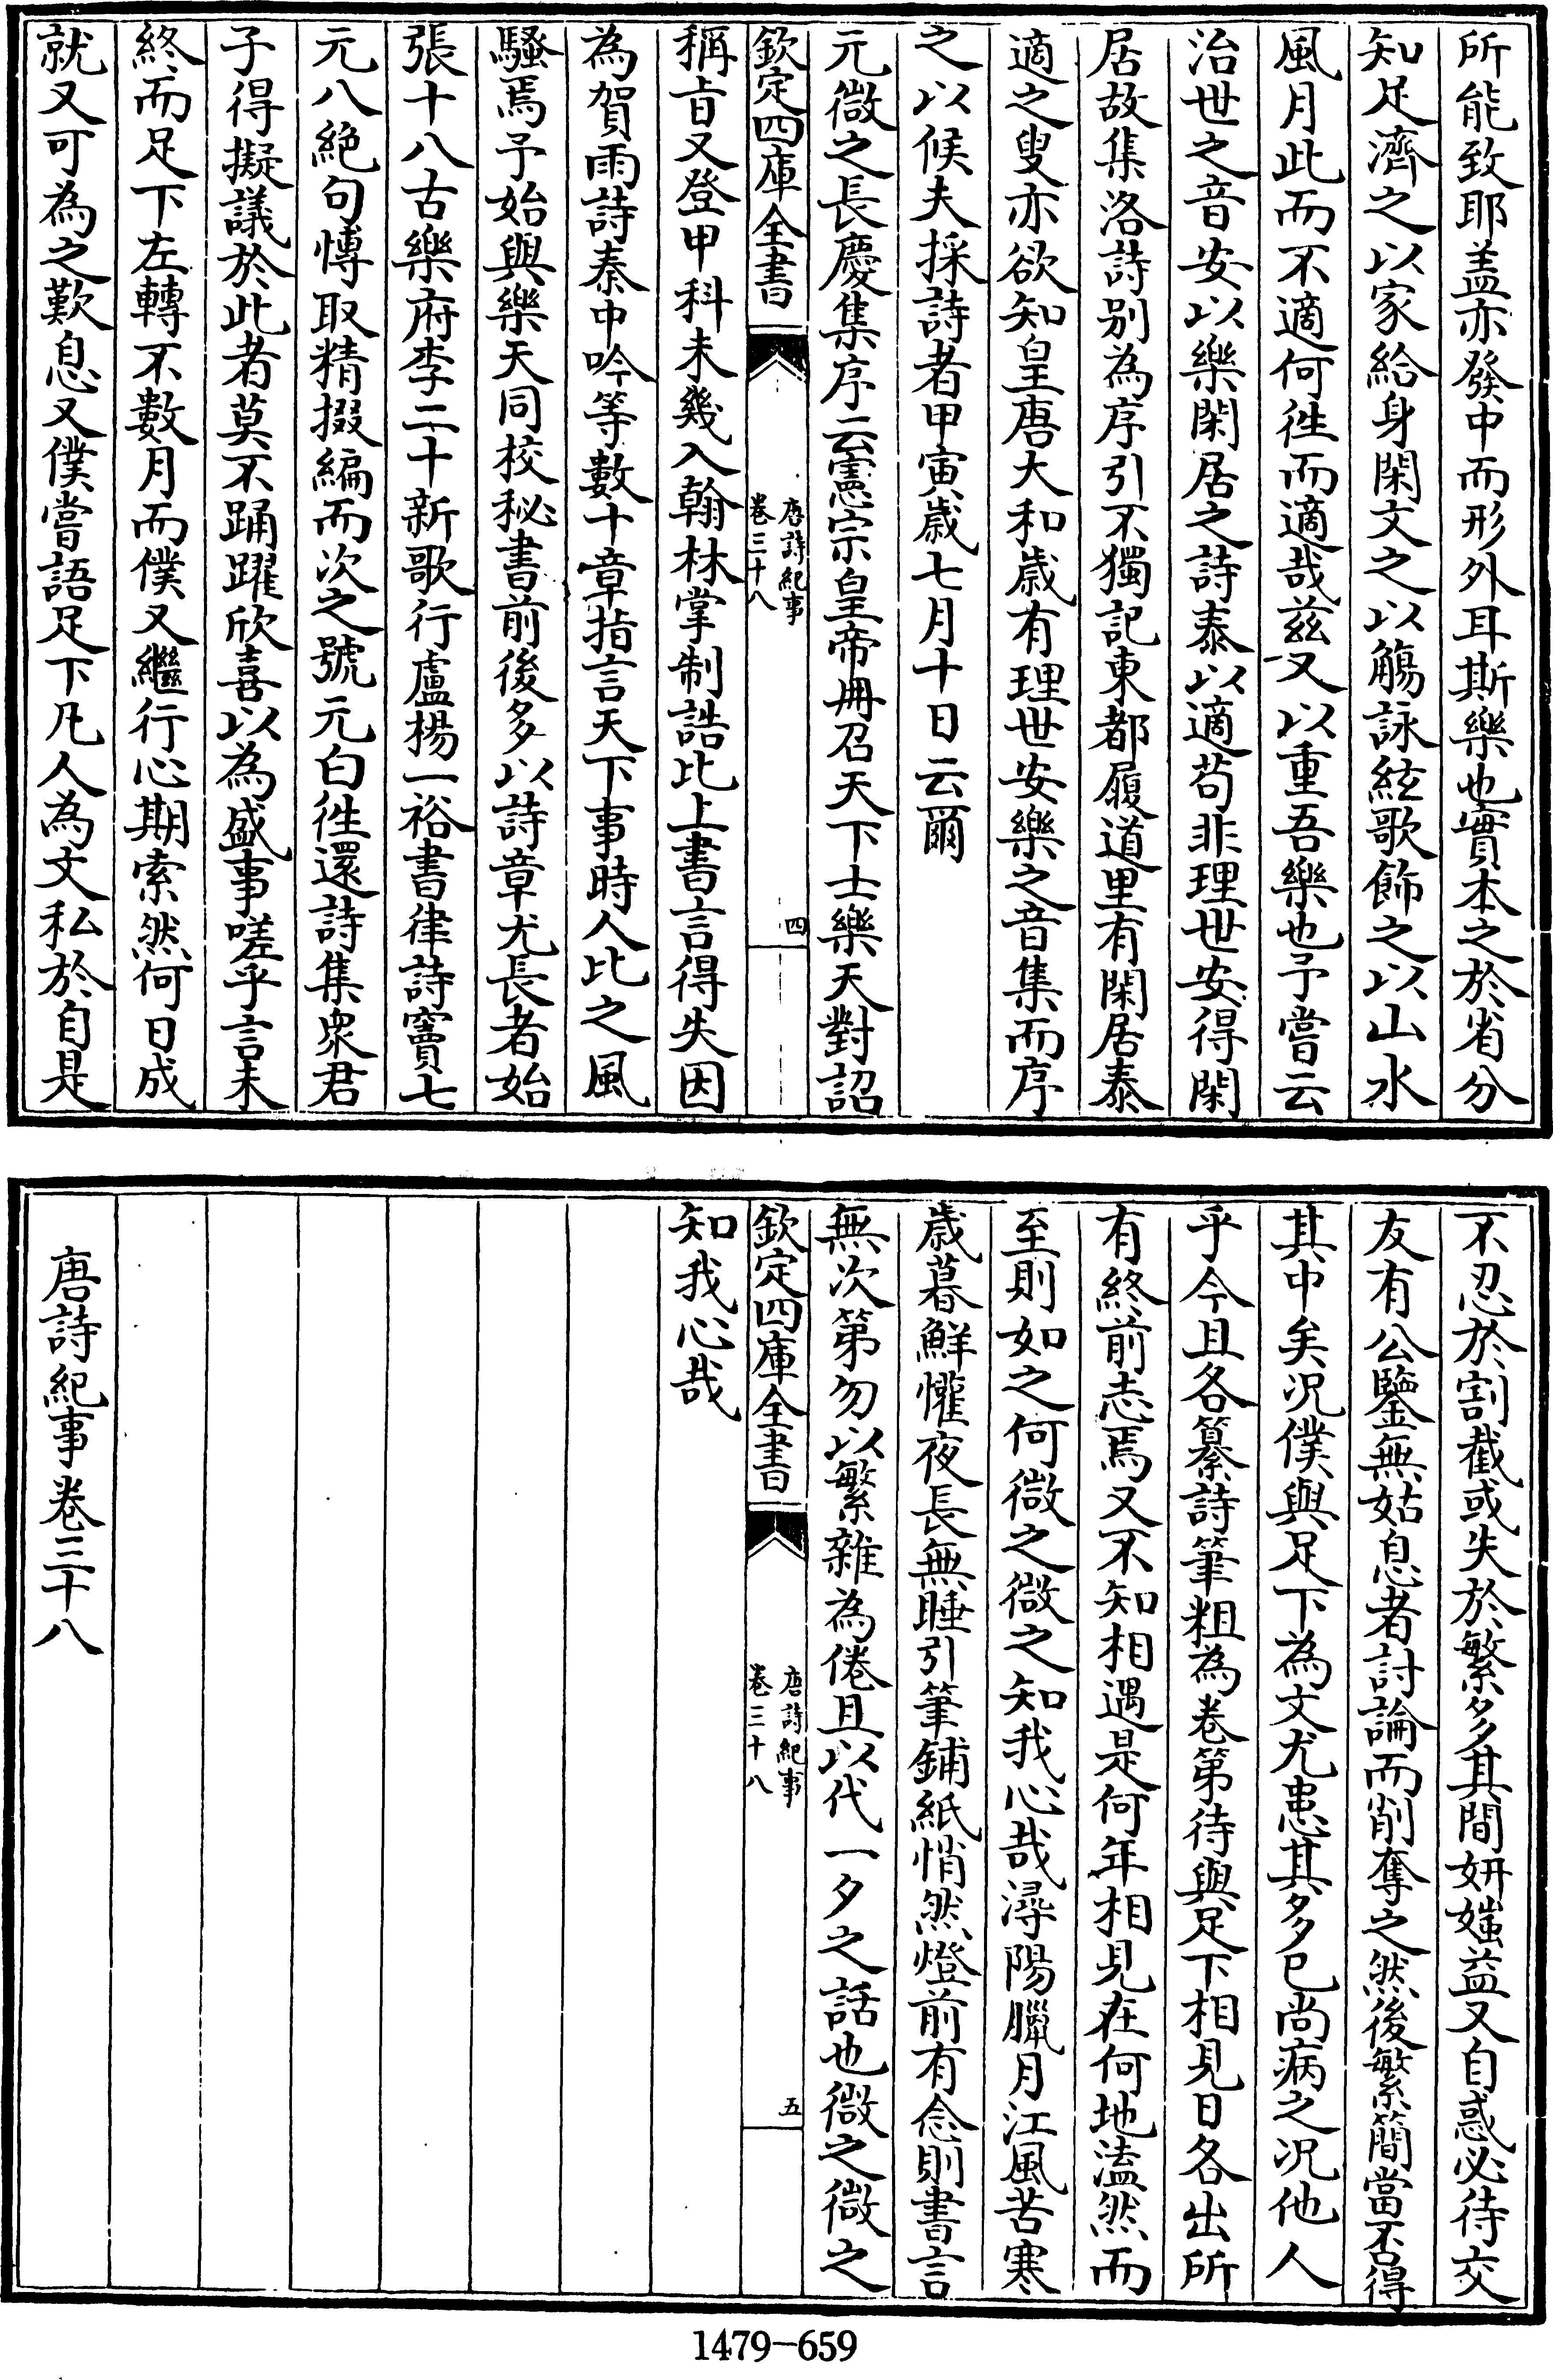 所能致耶盖亦發中而形外耳斯樂也實本之於省分
知足濟之以家給身閑文之以觴詠絃歌飾之以山水
風月此而不適何徃而適哉兹又以重吾樂也予嘗云
治世之音安以樂閑居之詩泰以適苟非理世安得閑
居故集洛詩别為序引不獨記東都履道里有閑居泰
適之叟亦欲知皇唐大和歲有理世安樂之音集而序
之以候夫採詩者甲寅歲七月十日云爾
元微之長慶集序云憲宗皇帝冊召天下士樂天對詔
欽定四庫全書
唐詩紀事
卷三十八
四
稱旨又登甲科未幾入翰林掌制誥比上書言得失因
為賀雨詩秦中吟等數十章指言天下事時人比之風
騷焉予始與樂天同校秘書前後多以詩章尤長者始
張十八古樂府李二十新歌行盧楊一裕書律詩竇七
元八絶句愽取精掇編而次之號元白徃還詩集衆君
子得擬議於此者莫不踊躍欣喜以為盛事嗟乎言未
終而足下左轉不數月而僕又繼行心期索然何日成
就又可為之歎息又僕嘗語足下凡人為文私於自是
不忍於割截或失於繁多其間妍媸益又自惑必待交
友有公鑒無姑息者討論而削奪之然後繁簡當否得
其中矣况僕與足下為文尤患其多已尚病之况他人
乎今且各纂詩筆粗為卷第待與足下相見日各出所
有終前志焉又不知相遇是何年相見在何地溘然而
至則如之何微之微之知我心哉潯陽臘月江風苦寒
歲暮鮮懽夜長無睡引筆鋪紙悄然燈前有念則書言
無次第勿以繁雜為倦且以代一夕之話也微之微之
欽定四庫全書
唐詩紀事
卷三十八
五
知我心哉
唐詩紀事卷三十八
1479-659